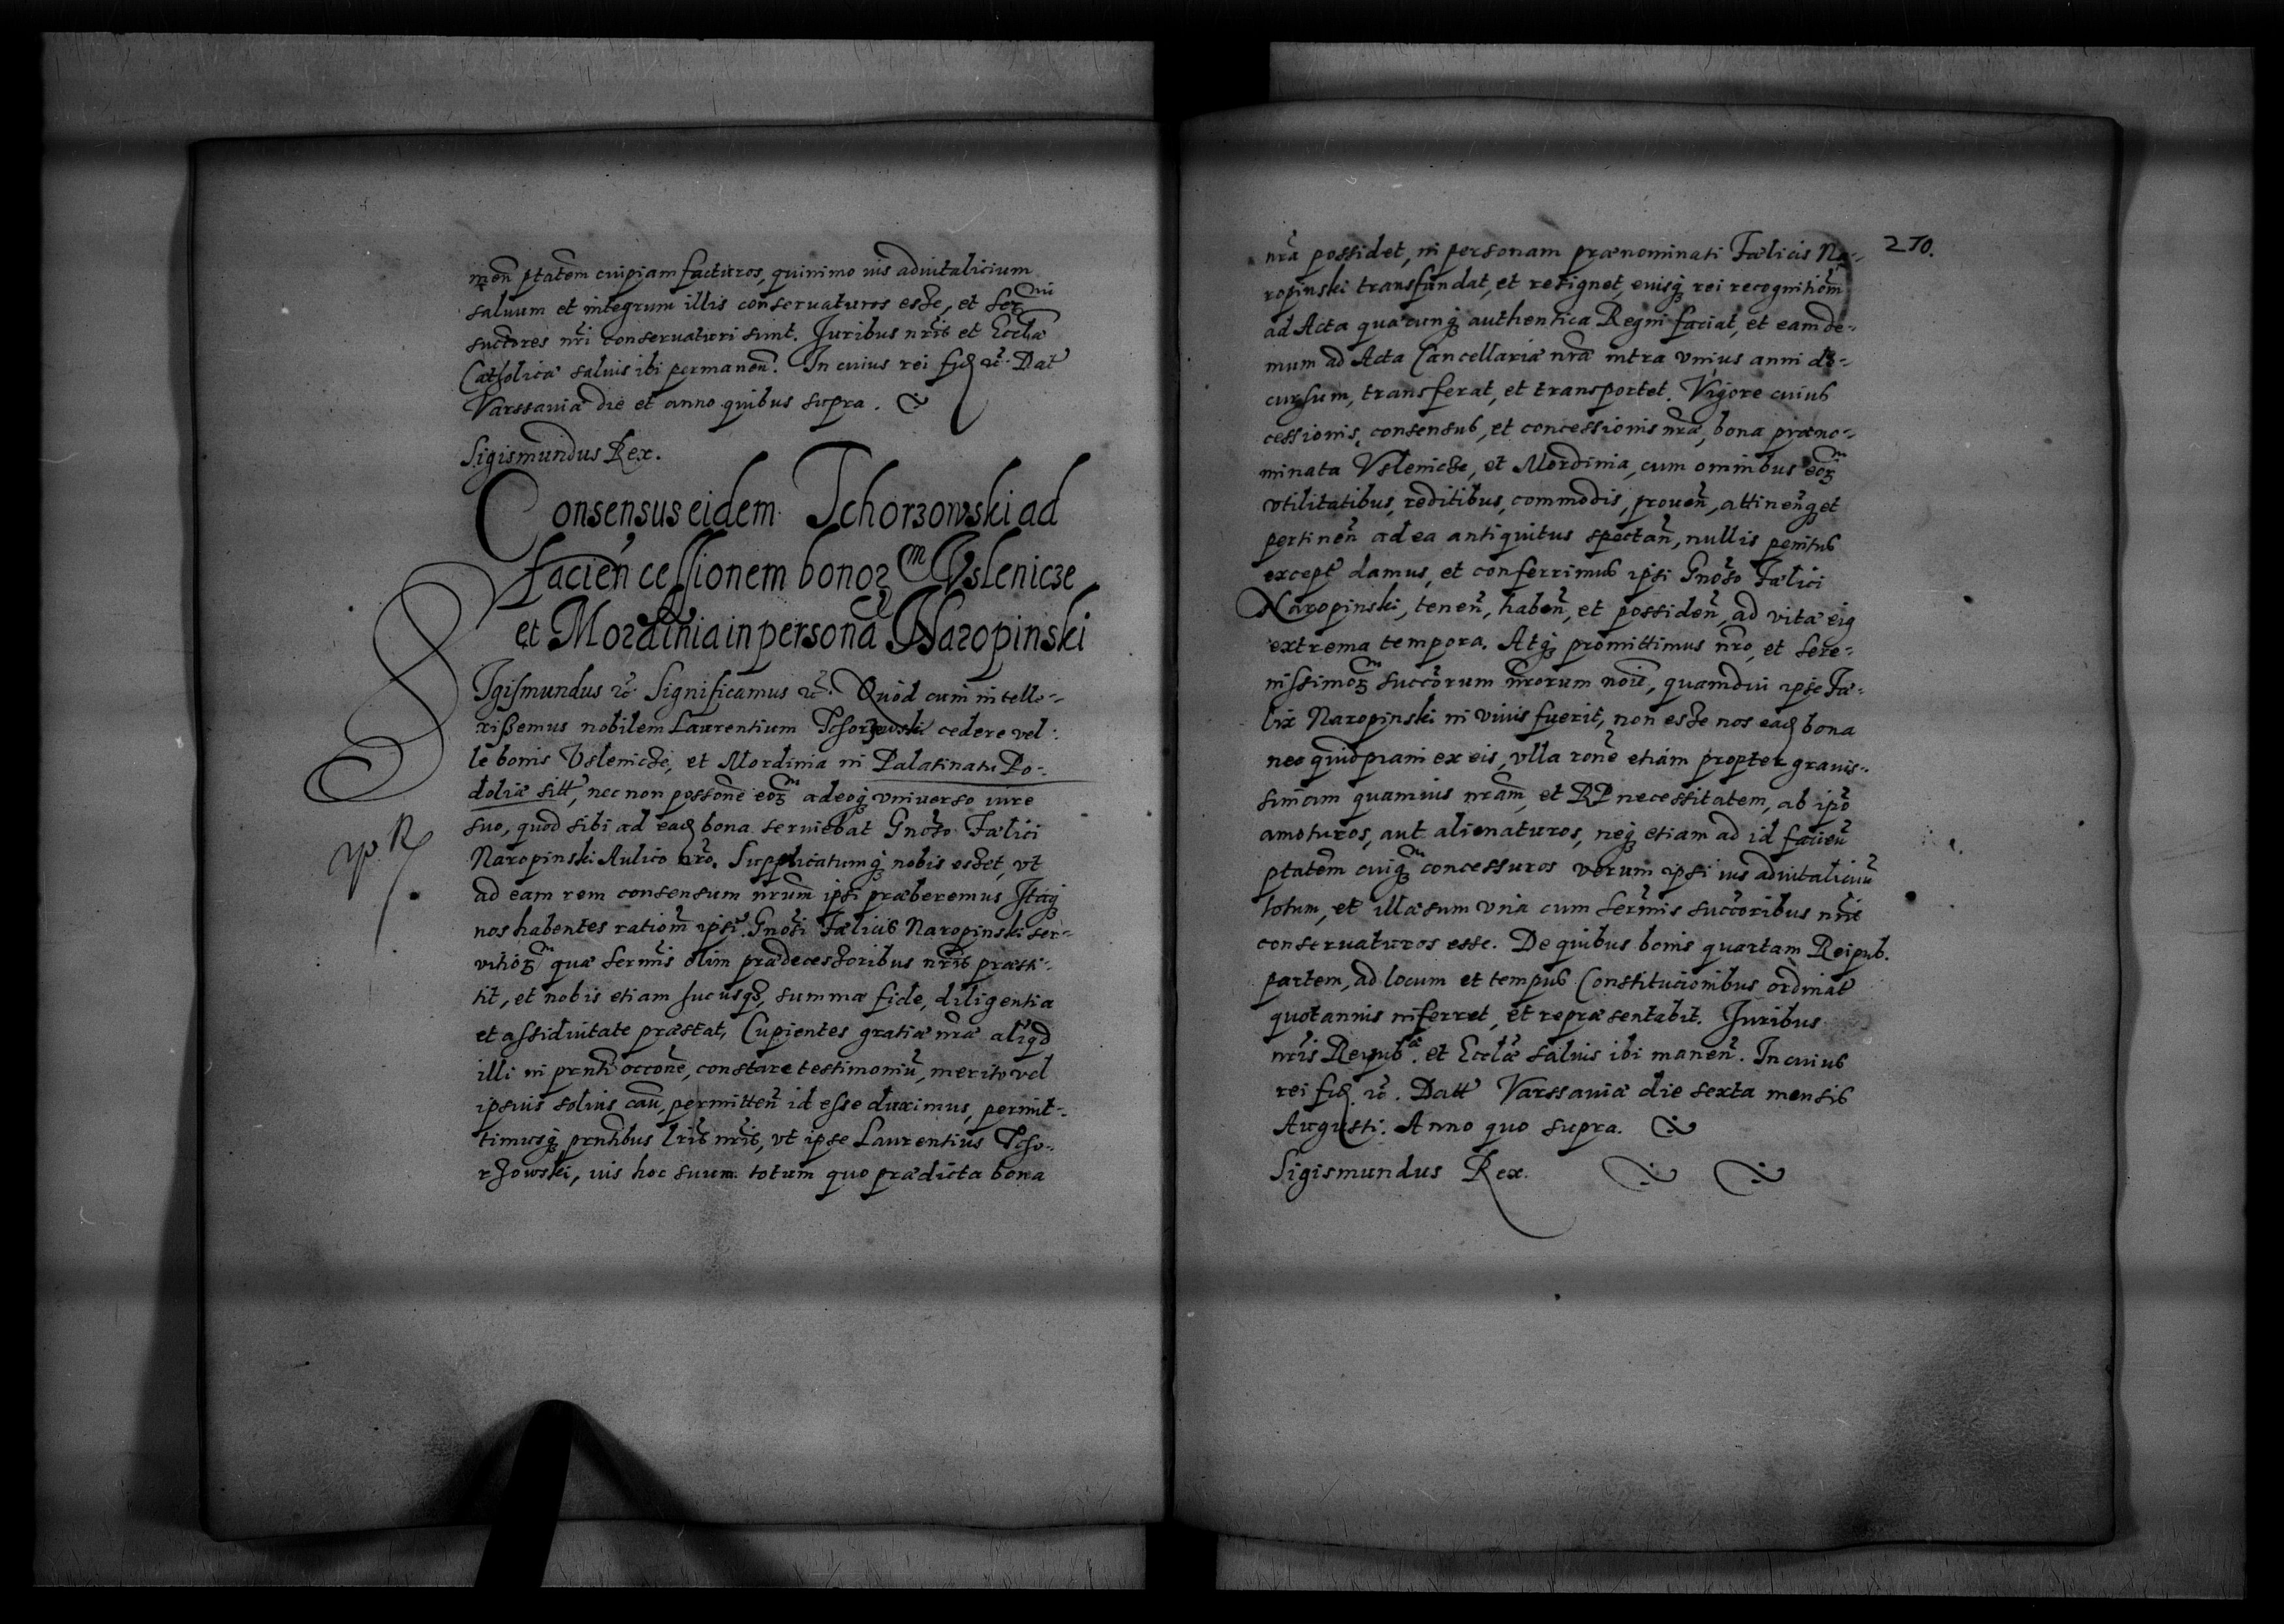 men ptatem cuipiam facturos, quinimo ius aduitalicium
saluum et integrum illis conseruaturos esse, et Ser^mi
suctores nri conseruaturi sunt. Juribus nris et Ecclæ
Catholicæ saluis ibi permanen. In cuius rei fid etc. Dat
Varssauiæ die et anno quibus supra.
Sigismundus Rex.
Consensus eidem Tchorzowski ad
facien cessionem bonoꝝ^m Vslenicze
et Mordinia in persona Naropinski
SIgismundus etc. Significamus etc. Quod cum intelle-
xissemus nobilem Laurentium Tchorzowski cedere vel-
le bonis Vslenicze, et Mordinia in Palatinatu Po-
doliæ sitt, nec non possone eoꝝ^m adeoqꝫ vniuerso iure
suo, quod sibi ad ead bona seruiebat Gnoso Fælici
Naropinski Aulico nro. Supplicatumqꝫ nobis esset, vt
ad eam rem consensum nrum ipsi præberemus Itaqꝫ
nos habentes rationem ipsi Gnosi Fælicis Naropinski ser-
vitioꝝ^m quæ sermis olim prædecessoribus nris præsti-
tit, et nobis etiam hucusqꝫ, summæ fide, diligentia
et assiduitate præstat, Cupientes gratiæ nræ aliqd
illi in prnti occone, constare testimoniu, merito vel
ipsius solius cau, permitten id esse duximus, permit-
timusqꝫ prntibus lris nris, vt ipse Laurentius Tcho-
rzowski, ius hoc suum totum quo prædicta bona
270.
nra possidet, in personam prænominati Fælicis Na-
ropinski transfundat, et resignet, euisqꝫ rei recognitiom
ad Acta quæcunqꝫ authentica Regni faciat, et eam de-
mum ad Acta Cancellariæ nræ intra vnius anni de-
cursum, transferat, et transportet. Vigore cuius
cessionis, consensus, et concessionis nræ, bona præno-
minata Vslenicze, et Mordinia, cum omnibus eoꝝ^m
vtilitatibus, reditibus, commodis, prouen, attinenqꝫ et
pertinen ad ea antiquitus spectan, nullis penitus
except damus, et conferrimus ipsi Gnoso Fælici
Naropinski, tenen, haben, et possiden, ad vitæ eiꝯ
extrema tempora. Atqꝫ promittimus nro, et Sere-
nissimoꝝ^m succorum nrorum noie, quamdiu ipse Fæ-
lix Naropinski in viuis fuerit, non esse nos ead bona
nec quidpiam ex eis, vlla rone etiam propter grauis-
simam quamuis nram, et RP necessitatem, ab ipo
amoturos, aut alienaturos, neqꝫ etiam ad id facien
ptatem cuiqꝫ^m concessuros verum ipsi ius aduitaliciu
totum, et illæsum vna cum sermis succoribus nris
conseruaturos esse. De quibus bonis quartam Reipub.
partem, ad locum et tempus Constitucionibus ordinat
quotannis inferret, et repræsentabit. Juribus
nris Reipub^æ. et Ecclæ saluis ibi manen. In cuius
rei fid. etc. Datt Varssauiæ die sexta mensis
Augusti. Anno quo supra.
Sigismundus Rex.